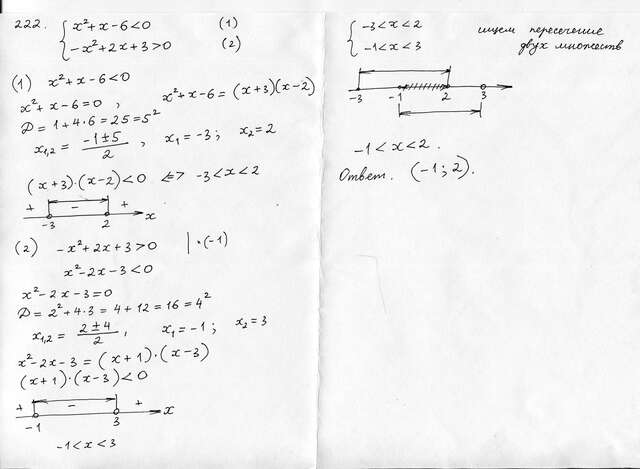 222. { x²+x-6<0 (1)
-x²+2x+3>0 (2)
(1) x²+x-6<0
x²+x-6=0 , x²+x-6=(x+3)(x-2)
D=1+4·6=25=5²
x₁,₂ = (-1±5)/2 , x₁=-3; x₂=2
(x+3)·(x-2)<0 <=> -3<x<2
+ - +
-3 2 x
(2) -x²+2x+3>0 |·(-1)
x²-2x-3<0
x²-2x-3=0
D=2²+4·3=4+12=16=4²
x₁,₂ = (2±4)/2 , x₁=-1; x₂=3
x²-2x-3=(x+1)·(x-3)
(x+1)·(x-3)<0
+ - +
-1 3 x
-1<x<3
{ -3<x<2 ищем пересечение
-1<x<3 двух множеств
-3 -1 2 3
-1<x<2.
Ответ. (-1; 2).